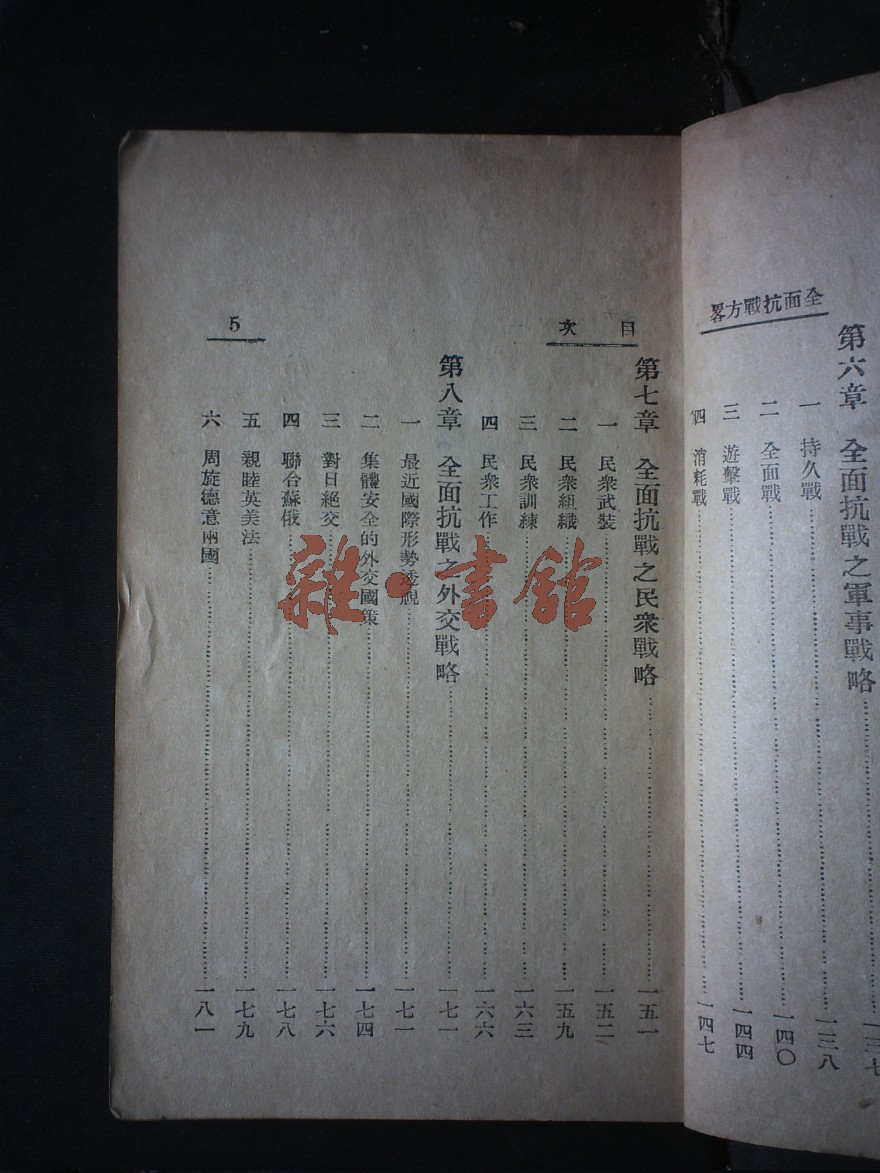 全面抗戰方畧
第六章 全面抗戰之軍事戰略……一三七
一 持久戰……一三八
二 全面戰……一四〇
三 遊擊戰……一四四
四 消耗戰……一四七
目次
第七章 全面抗戰之民衆戰略……一五一
一 民衆武裝……一五二
二 民衆組織……一五九
三 民衆訓練……一六三
四 民衆工作……一六六
第八章 全面抗戰之外交戰略……一七一
一 最近國際形勢透視……一七一
二 集體安全的外交國策……一七四
三 對日絕交……一七六
四 聯合蘇俄……一七八
五 親睦英美法……一七九
六 周旋德意兩國……一八一
5
雜·書館